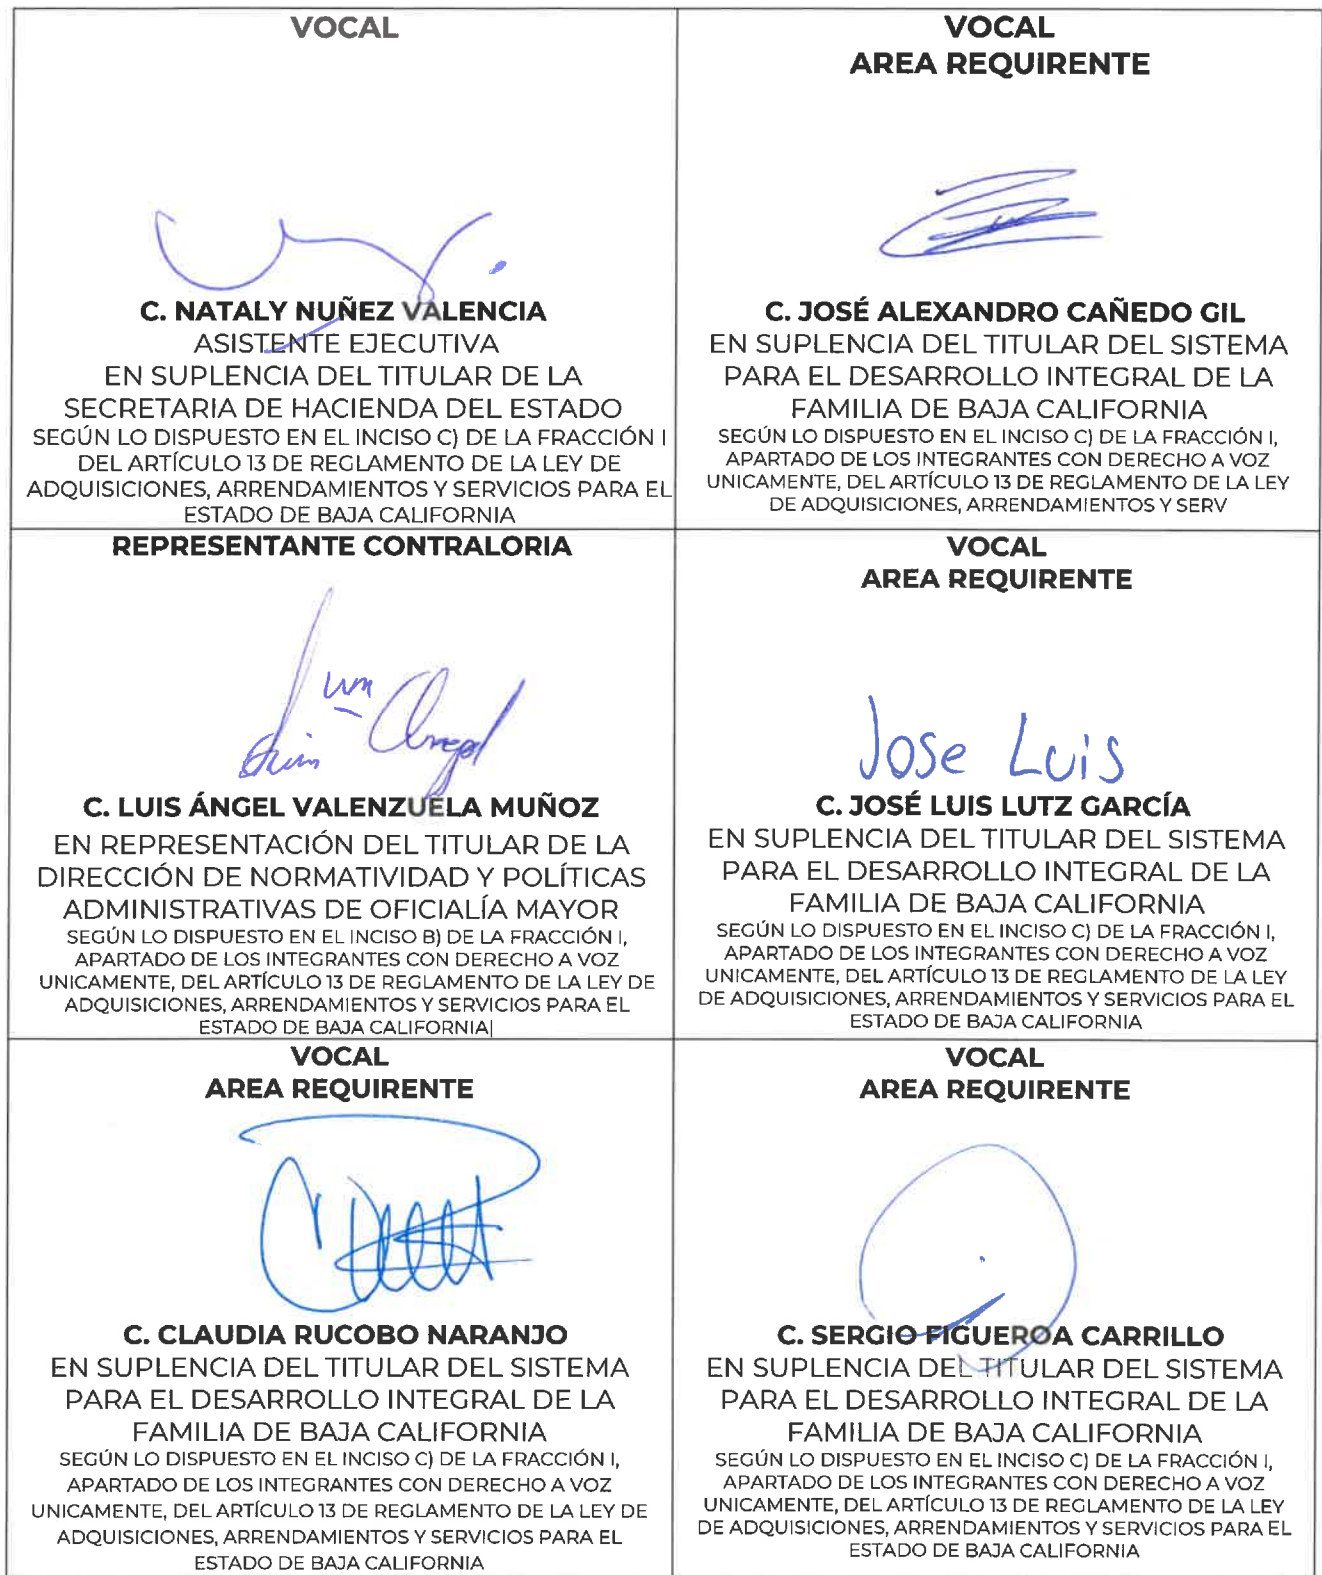 VOCAL
C. NATALY NUÑEZ VALENCIA
ASISTENTE EJECUTIVA
EN SUPLENCIA DEL TITULAR DE LA
SECRETARIA DE HACIENDA DEL ESTADO
SEGÚN LO DISPUESTO EN EL INCISO C) DE LA FRACCIÓN I
DEL ARTÍCULO 13 DE REGLAMENTO DE LA LEY DE
ADQUISICIONES, ARRENDAMIENTOS Y SERVICIOS PARA EL
ESTADO DE BAJA CALIFORNIA
VOCAL
AREA REQUIRENTE
C. JOSÉ ALEXANDRO CAÑEDO GIL
EN SUPLENCIA DEL TITULAR DEL SISTEMA
PARA EL DESARROLLO INTEGRAL DE LA
FAMILIA DE BAJA CALIFORNIA
SEGÚN LO DISPUESTO EN EL INCISO C) DE LA FRACCIÓN I,
APARTADO DE LOS INTEGRANTES CON DERECHO A VOZ
UNICAMENTE, DEL ARTÍCULO 13 DE REGLAMENTO DE LA LEY
DE ADQUISICIONES, ARRENDAMIENTOS Y SERV
REPRESENTANTE CONTRALORIA
Angel
C. LUIS ÁNGEL VALENZUELA MUÑOZ
EN REPRESENTACIÓN DEL TITULAR DE LA
DIRECCIÓN DE NORMATIVIDAD Y POLÍTICAS
ADMINISTRATIVAS DE OFICIALÍA MAYOR
SEGÚN LO DISPUESTO EN EL INCISO B) DE LA FRACCIÓN I,
APARTADO DE LOS INTEGRANTES CON DERECHO A VOZ
UNICAMENTE, DEL ARTÍCULO 13 DE REGLAMENTO DE LA LEY DE
ADQUISICIONES, ARRENDAMIENTOS Y SERVICIOS PARA EL
ESTADO DE BAJA CALIFORNIA|
VOCAL
AREA REQUIRENTE
Jose Luis
C. JOSÉ LUIS LUTZ GARCÍA
EN SUPLENCIA DEL TITULAR DEL SISTEMA
PARA EL DESARROLLO INTEGRAL DE LA
FAMILIA DE BAJA CALIFORNIA
SEGÚN LO DISPUESTO EN EL INCISO C) DE LA FRACCIÓN I,
APARTADO DE LOS INTEGRANTES CON DERECHO A VOZ
UNICAMENTE, DEL ARTÍCULO 13 DE REGLAMENTO DE LA LEY
DE ADQUISICIONES, ARRENDAMIENTOS Y SERVICIOS PARA EL
ESTADO DE BAJA CALIFORNIA
VOCAL
AREA REQUIRENTE
C. CLAUDIA RUCOBO NARANJO
EN SUPLENCIA DEL TITULAR DEL SISTEMA
PARA EL DESARROLLO INTEGRAL DE LA
FAMILIA DE BAJA CALIFORNIA
SEGÚN LO DISPUESTO EN EL INCISO C) DE LA FRACCIÓN I,
APARTADO DE LOS INTEGRANTES CON DERECHO A VOZ
UNICAMENTE, DEL ARTÍCULO 13 DE REGLAMENTO DE LA LEY DE
ADQUISICIONES, ARRENDAMIENTOS Y SERVICIOS PARA EL
ESTADO DE BAJA CALIFORNIA
VOCAL
AREA REQUIRENTE
C. SERGIO FIGUEROA CARRILLO
EN SUPLENCIA DEL TITULAR DEL SISTEMA
PARA EL DESARROLLO INTEGRAL DE LA
FAMILIA DE BAJA CALIFORNIA
SEGÚN LO DISPUESTO EN EL INCISO C) DE LA FRACCIÓN I,
APARTADO DE LOS INTEGRANTES CON DERECHO A VOZ
UNICAMENTE, DEL ARTÍCULO 13 DE REGLAMENTO DE LA LEY
DE ADQUISICIONES, ARRENDAMIENTOS Y SERVICIOS PARA EL
ESTADO DE BAJA CALIFORNIA